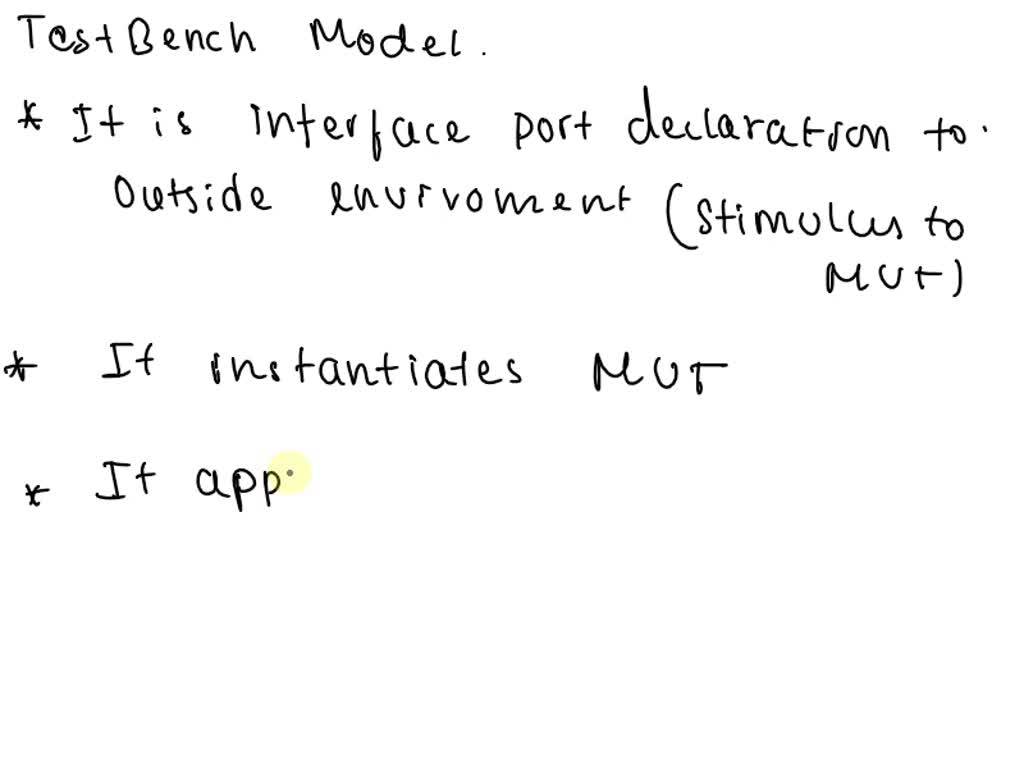 TestBench Model.
* It is interface port declaration to.
outside envirvoment (stimulus to
MUT)
* It instantiates MUT
* It app